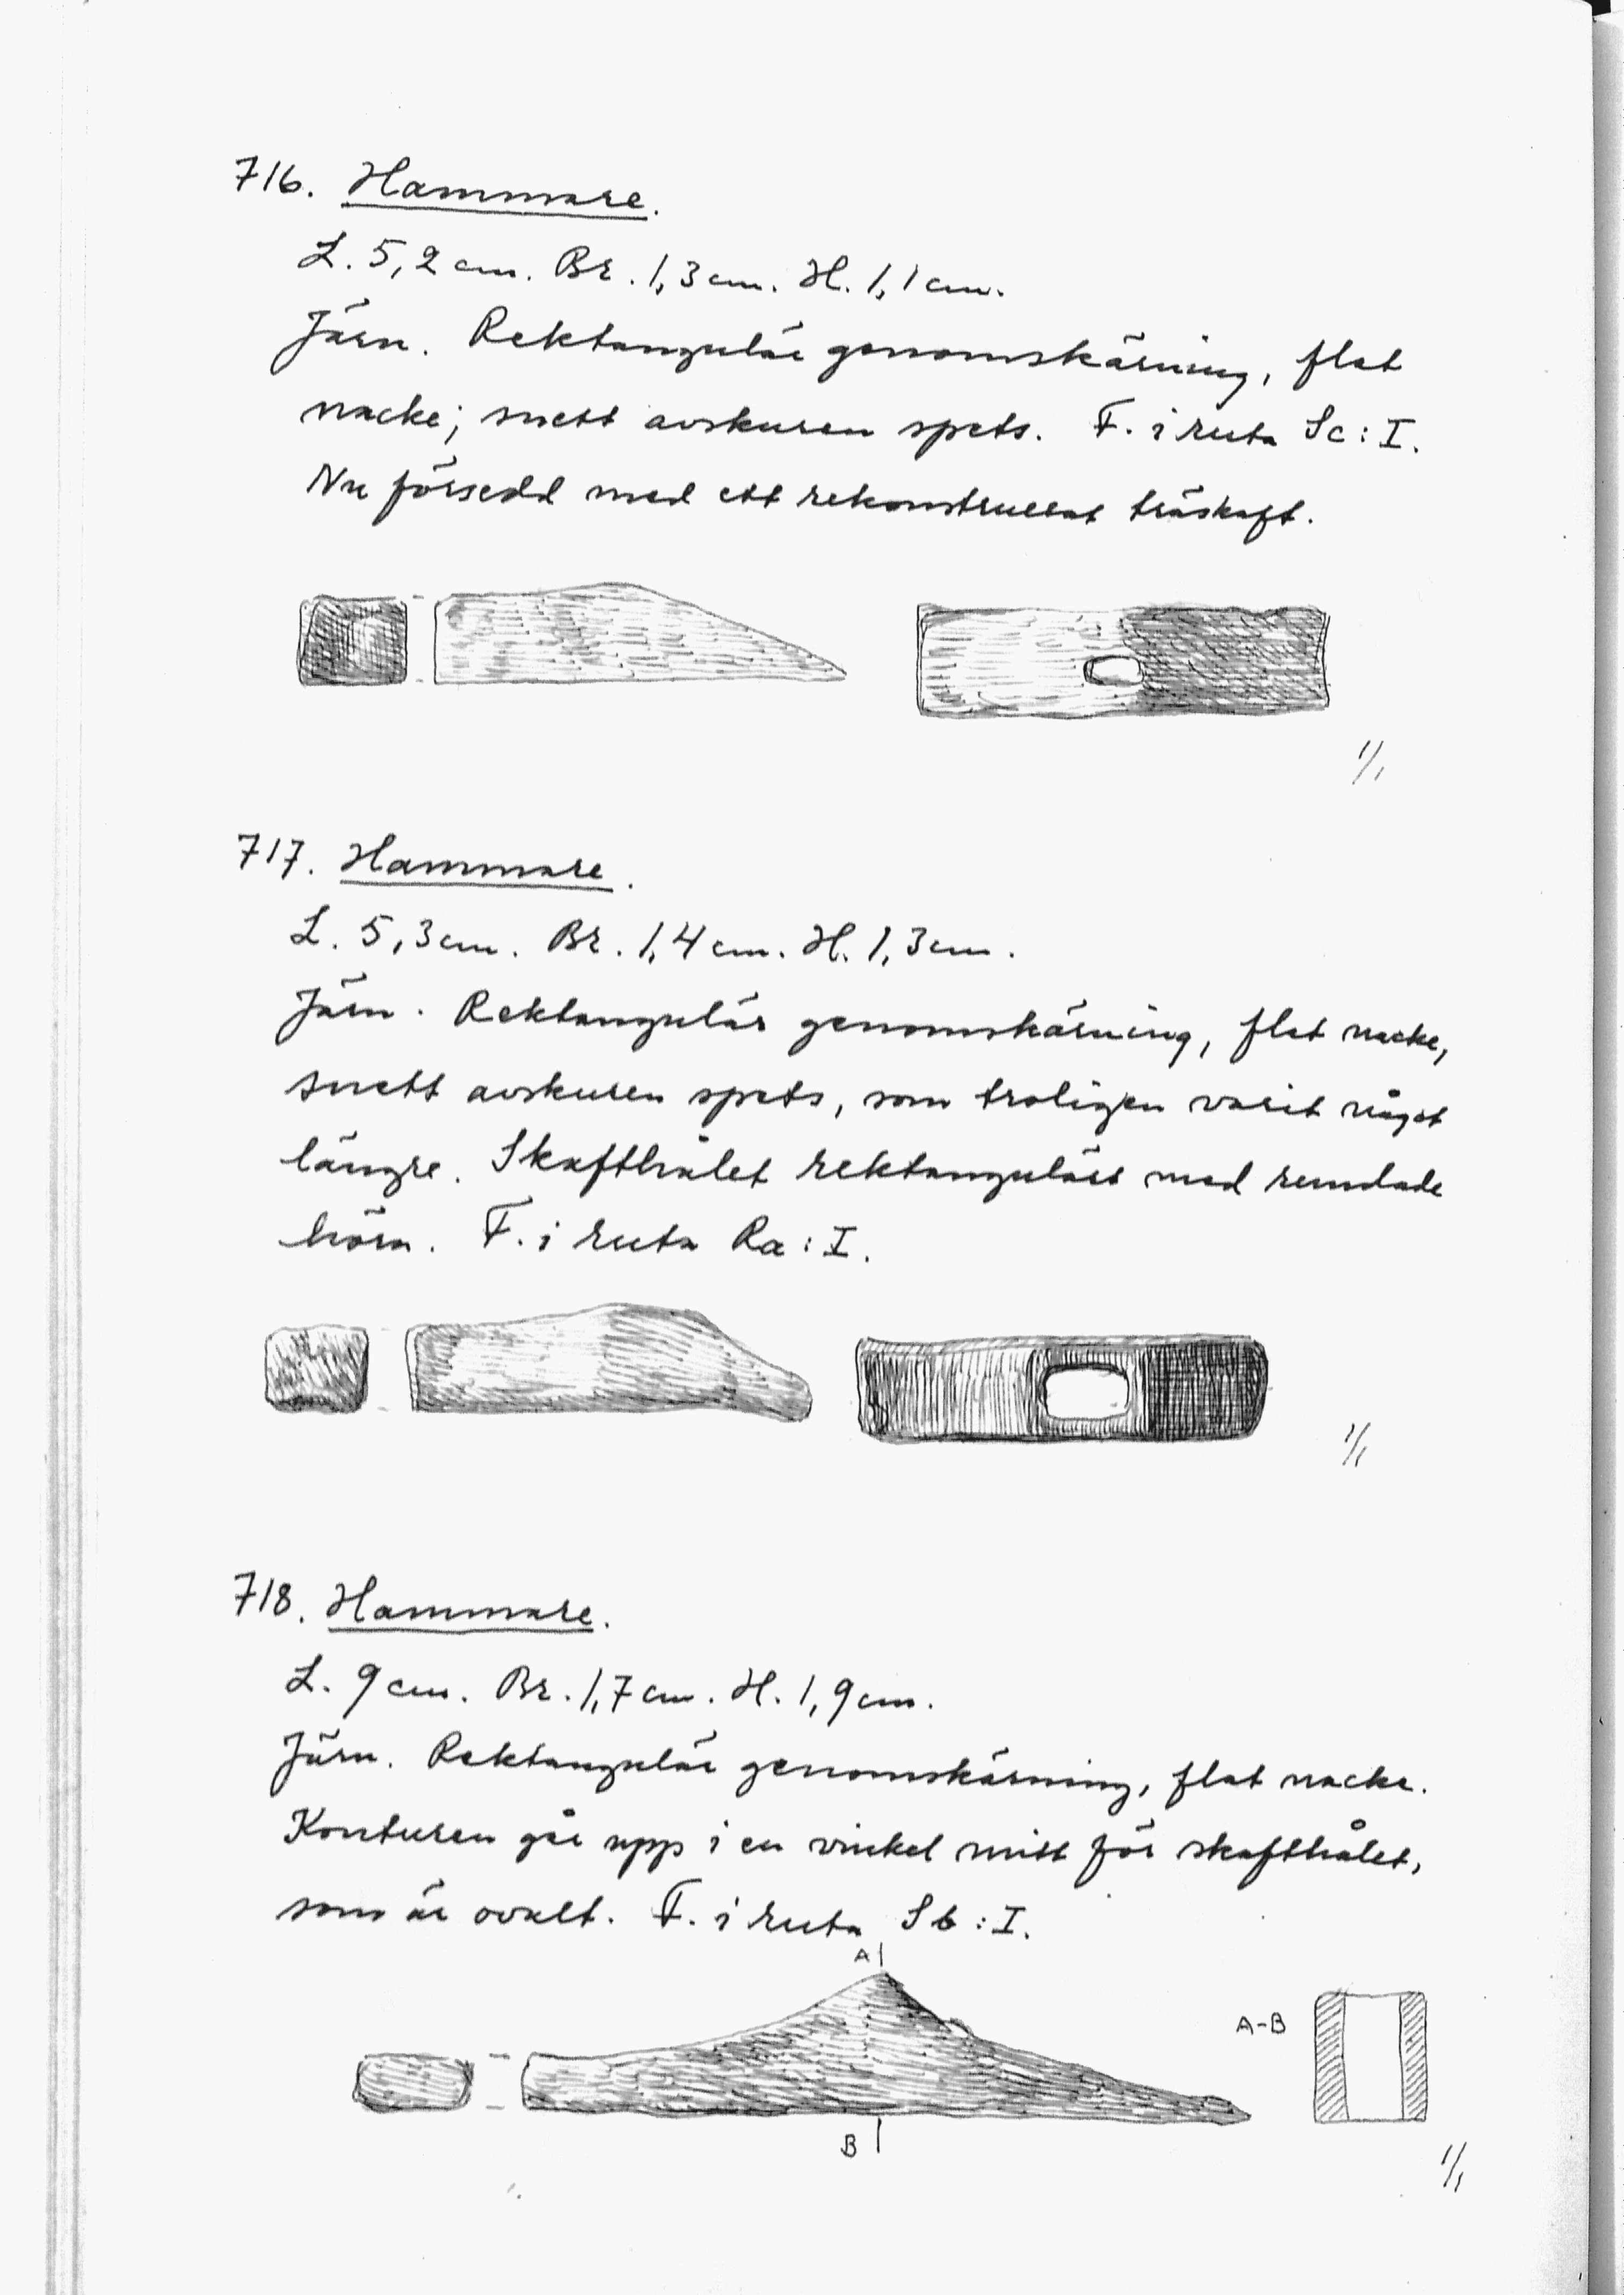 716. Hammare.
L. 5,2 cm. Br. 1,3 cm. H. 1,1 cm.
Järn. Rektangulär genomskärning, flat
nacke; snett avskuren spets. F. i ruta Sc: I.
Nu försedd med ett rekonstruerat träskaft.
1/1
717. Hammare.
L. 5,3 cm. Br. 1,4 cm. H. 1,3 cm.
Järn. Rektangulär genomskärning, flat nacke,
snett avskuren spets, som troligen varit något
längre. Skafthålet rektangulärt med rundade
hörn. F. i ruta Ra: I.
1/1
718. Hammare.
L. 9 cm. Br. 1,7 cm. H. 1,9 cm.
Järn. Rektangulär genomskärning, flat nacke.
Konturen går upp i en vinkel mitt för skafthålet,
som är ovalt. F. i ruta Sb: I.
A
A-B
B
1/1